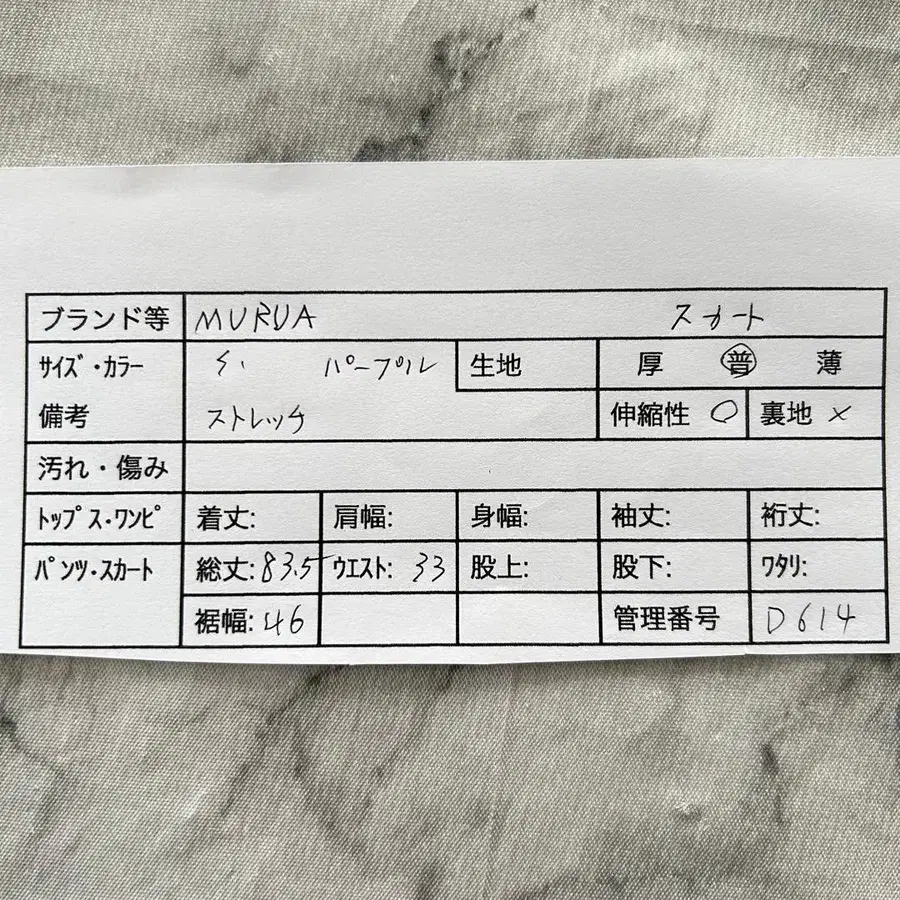 ブランド等 MURUA スカート
サイズ・カラー パープル 生地 厚 普 薄
備考 ストレッチ 伸縮性 ○ 裏地 ×
汚れ・傷み
トップス・ワンピ 着丈: 肩幅: 身幅: 袖丈: 裄丈:
パンツ・スカート 総丈:83.5 ウエスト: 33 股上: 股下: ワタリ:
裾幅:46 管理番号 D614